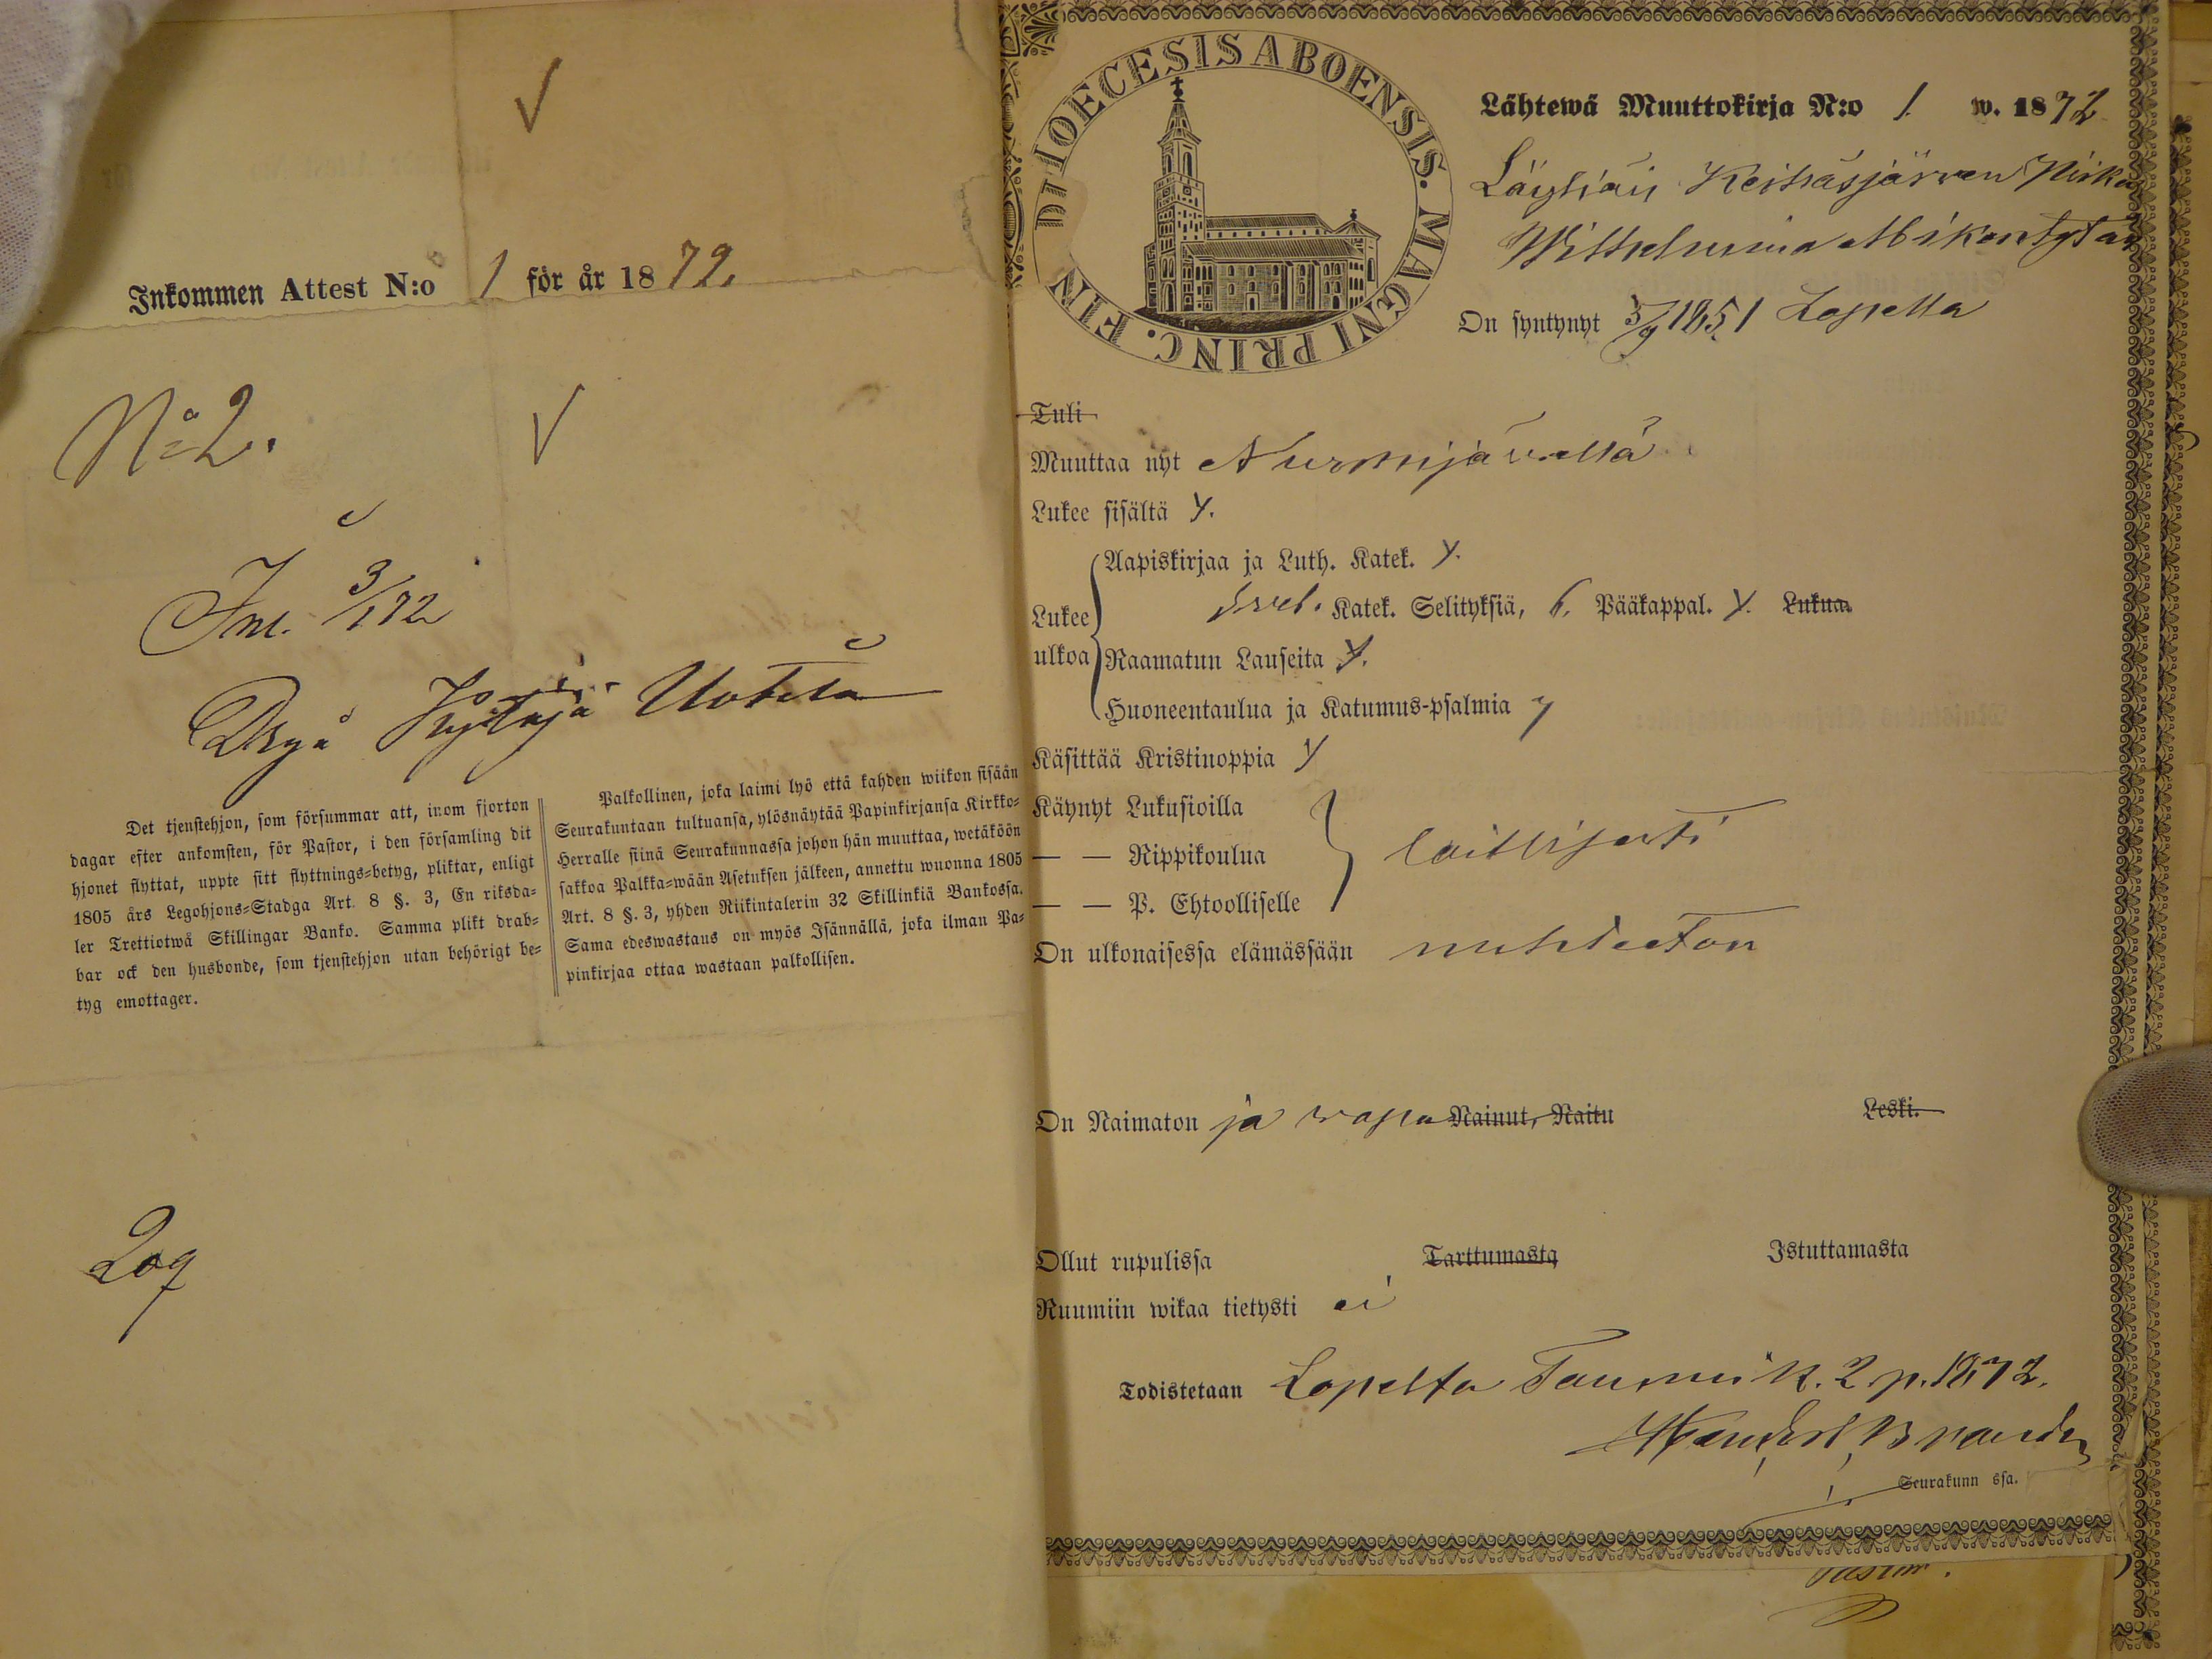 Inkommen Attest N:o 1 för år 1872.
N:o 2.
Inl. 3/1 72
Pigа Uotila
Det tjenstehjon, som försummar att, inom fjorton
dagar efter ankomsten, för Pastor, i den församling dit
hjonet flyttat, uppte sitt flyttnings=betyg, pliktar, enligt
1805 års Legohjons=Stadga Art. 8 §. 3, En riksda=
ler Trettiotwå Skillingar Banko. Samma plikt drab=
bar ock den husbonde, som tjenstehjon utan behörigt be=
tyg emottager.
Palkollinen, joka laimi lyö että kahden wiikon sisään
Seurakuntaan tultuansa, ylösnäytää Papinkirjansa Kirkko=
Herralle siinä Seurakunnassa johon hän muuttaa, wetäköön
sakkoa Palkka=wään Asetuksen jälkeen, annettu wuonna 1805
Art. 8 §. 3, yhden Riikintalerin 32 Skillinkiä Bankossa.
Sama edeswastaus on myös Isännällä, joka ilman Pa=
pinkirjaa ottaa wastaan palkollisen.
209
DIOECESIS ABOENSIS. MAGNI PRINC. FIN
Lähtewä Muuttokirja N:o 1. w. 1872
Läyliäis Keihäsjärwen
Wilhelmina
On syntynyt 3/9 1851 Lopella
Tuli
Muuttaa nyt Nurmijärwellä
Lukee sisältä y.
Lukee ulkoa
Aapiskirjaa ja Luth. Katek. y.
Sveb. Katek. Selityksiä, 6. Pääkappal. y. Lukua.
Raamatun Lauseita y.
Huoneentaulua ja Katumus-psalmia y
Käsittää Kristinoppia y
Käynyt Lukusioilla
— — Rippikoulua laillisesti
— — P. Ehtoolliselle
On ulkonaisessa elämässään nuhteeton
On Naimaton ja wapa Nainut, Naitu Leski.
Ollut rupulissa Tarttumasta Istuttamasta
Ruumiin wikaa tietysti ei
Todistetaan Lopelta Tammik. 2 p. 1872.
Seurakunn ssa.
Pastor.